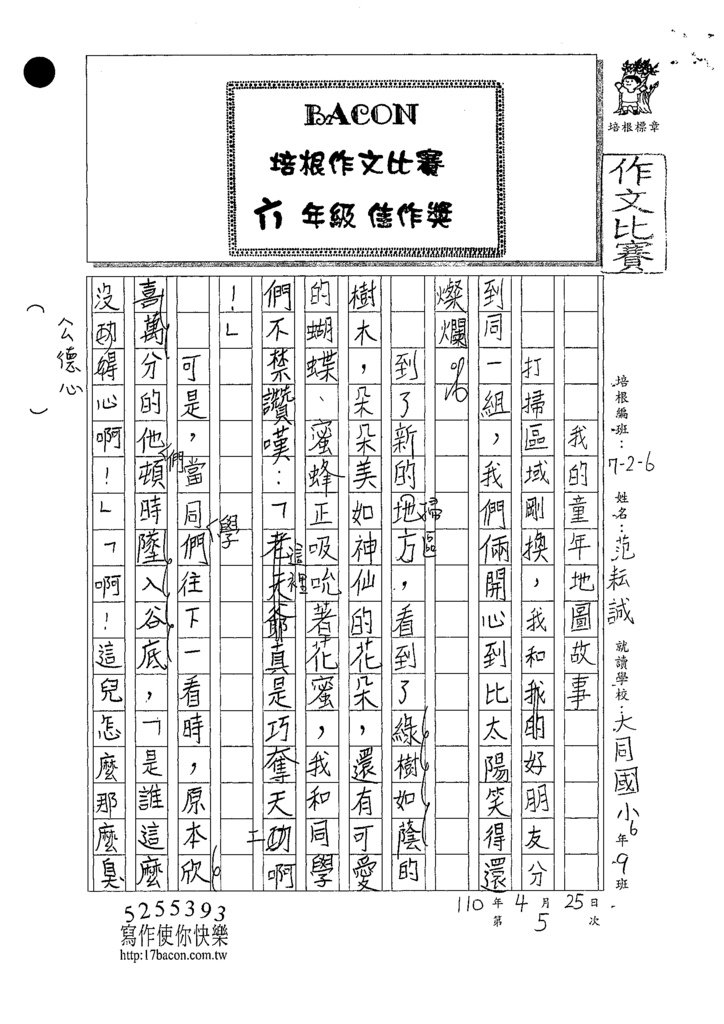 BACON
培根作文比賽
六年級佳作獎
培根標章
作文比賽
培根編班：7-2-6 姓名：范耘誠 就讀學校：大同國小6年9班
110年4月25日
第5次
我的童年地圖故事
打掃區域剛換，我和我的好朋友分
到同一組，我們倆開心到比太陽笑得還
燦爛。
到了新的地方，看到了綠樹如蔭的
掃區
樹木，朵朵美如神仙的花朵，還有可愛
的蝴蝶、蜜蜂正吸吮著花蜜，我和同學
們不禁讚嘆：「老天爺真是巧奪天功啊
這裡
工
！」
學
可是，當同們往下一看時，原本欣
喜萬分的他頓時墜入谷底，「是誰這麼
們
沒功德心啊！」「啊！這兒怎麼那麼臭
（公德心）
5255393
寫作使你快樂
http:17bacon.com.tw